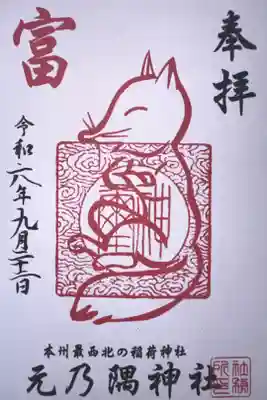 奉拝
富
令和六年九月二十二日
本州最西北の稲荷神社
元乃隅神社